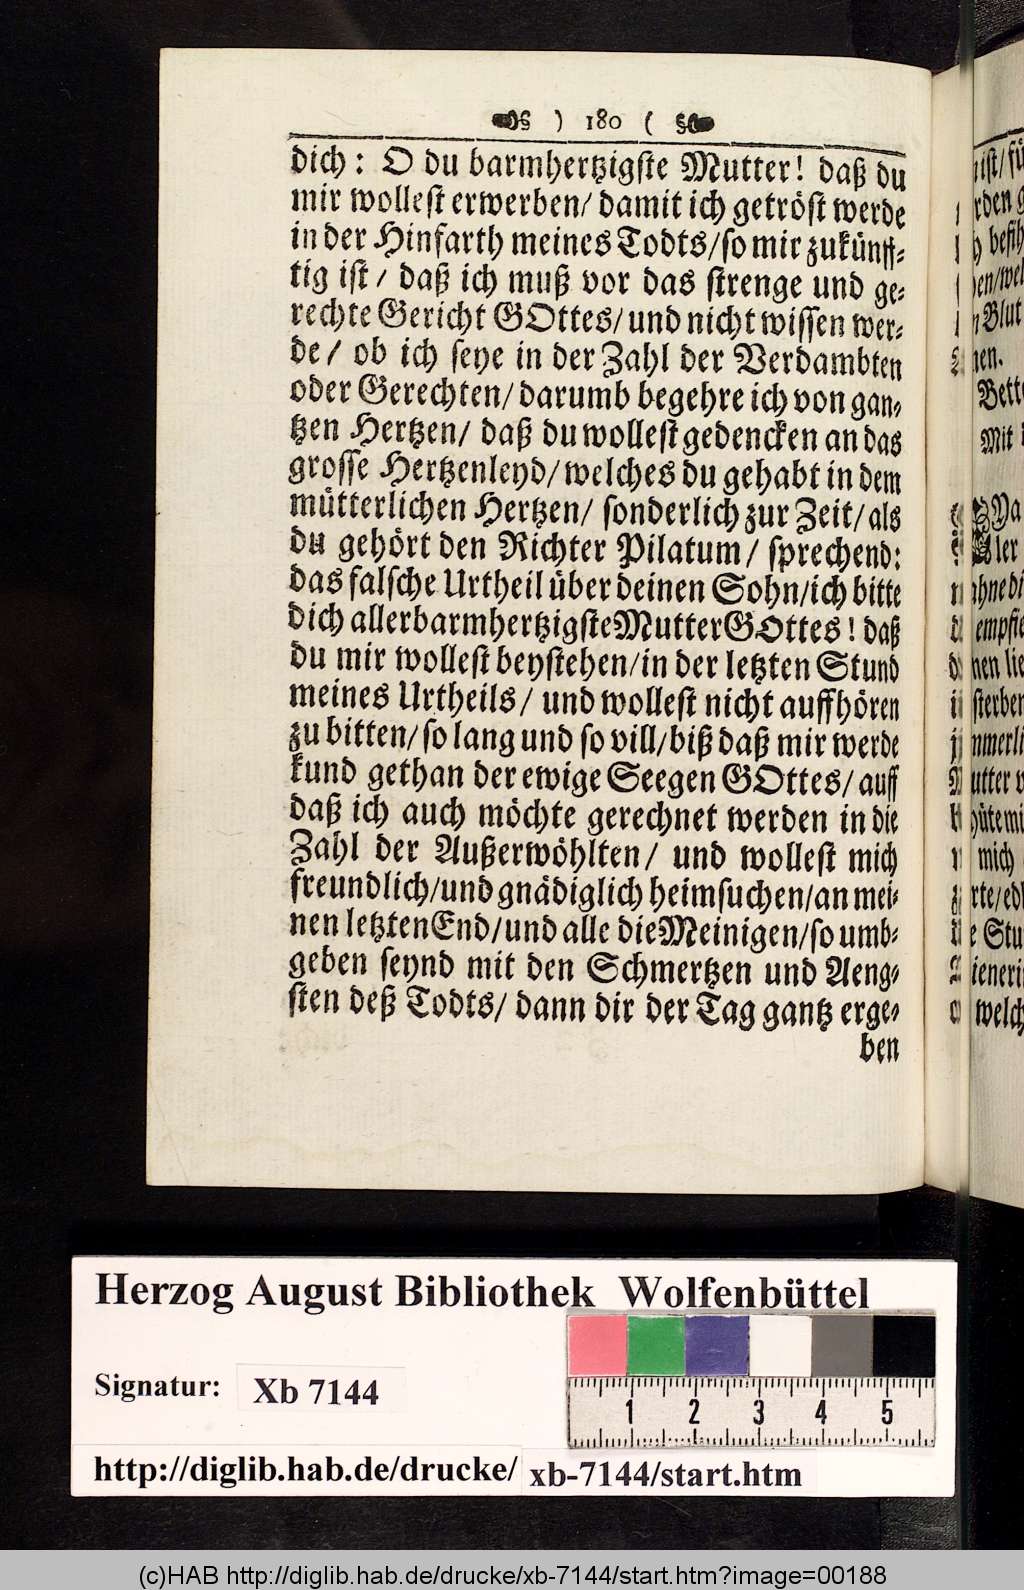 ) 180 (
dich: O du barmhertzigste Mutter! daß du
mir wollest erwerben/ damit ich getröst werde
in der Hinfarth meines Todts/ so mir zukünff-
tig ist/ daß ich muß vor das strenge und ge-
rechte Gericht GOttes/ und nicht wissen wer-
de/ ob ich seye in der Zahl der Verdambten
oder Gerechten/ darumb begehre ich von gan-
tzen Hertzen/ daß du wollest gedencken an das
grosse Hertzenleyd/ welches du gehabt in dem
mütterlichen Hertzen/ sonderlich zur Zeit/ als
du gehört den Richter Pilatum/ sprechend:
das falsche Urtheil über deinen Sohn/ ich bitte
dich allerbarmhertzigste Mutter GOttes! daß
du mir wollest beystehen/ in der letzten Stund
meines Urtheils/ und wollest nicht auffhören
zu bitten/ so lang und so vill/ biß daß mir werde
kund gethan der ewige Seegen GOttes/ auff
daß ich auch möchte gerechnet werden in die
Zahl der Außerwöhlten/ und wollest mich
freundlich/ und gnädiglich heimsuchen/ an mei-
nen letzten End/ und alle die Meinigen/ so umb-
geben seynd mit den Schmertzen und Aeng-
sten deß Todts/ dann dir der Tag gantz erge-
ben
ist/
Blut
Mit
mich
welch
Herzog August Bibliothek Wolfenbüttel
Signatur: Xb 7144
1 2 3 4 5
http://diglib.hab.de/drucke/ xb-7144/start.htm
(c)HAB http://diglib.hab.de/drucke/xb-7144/start.htm?image=00188